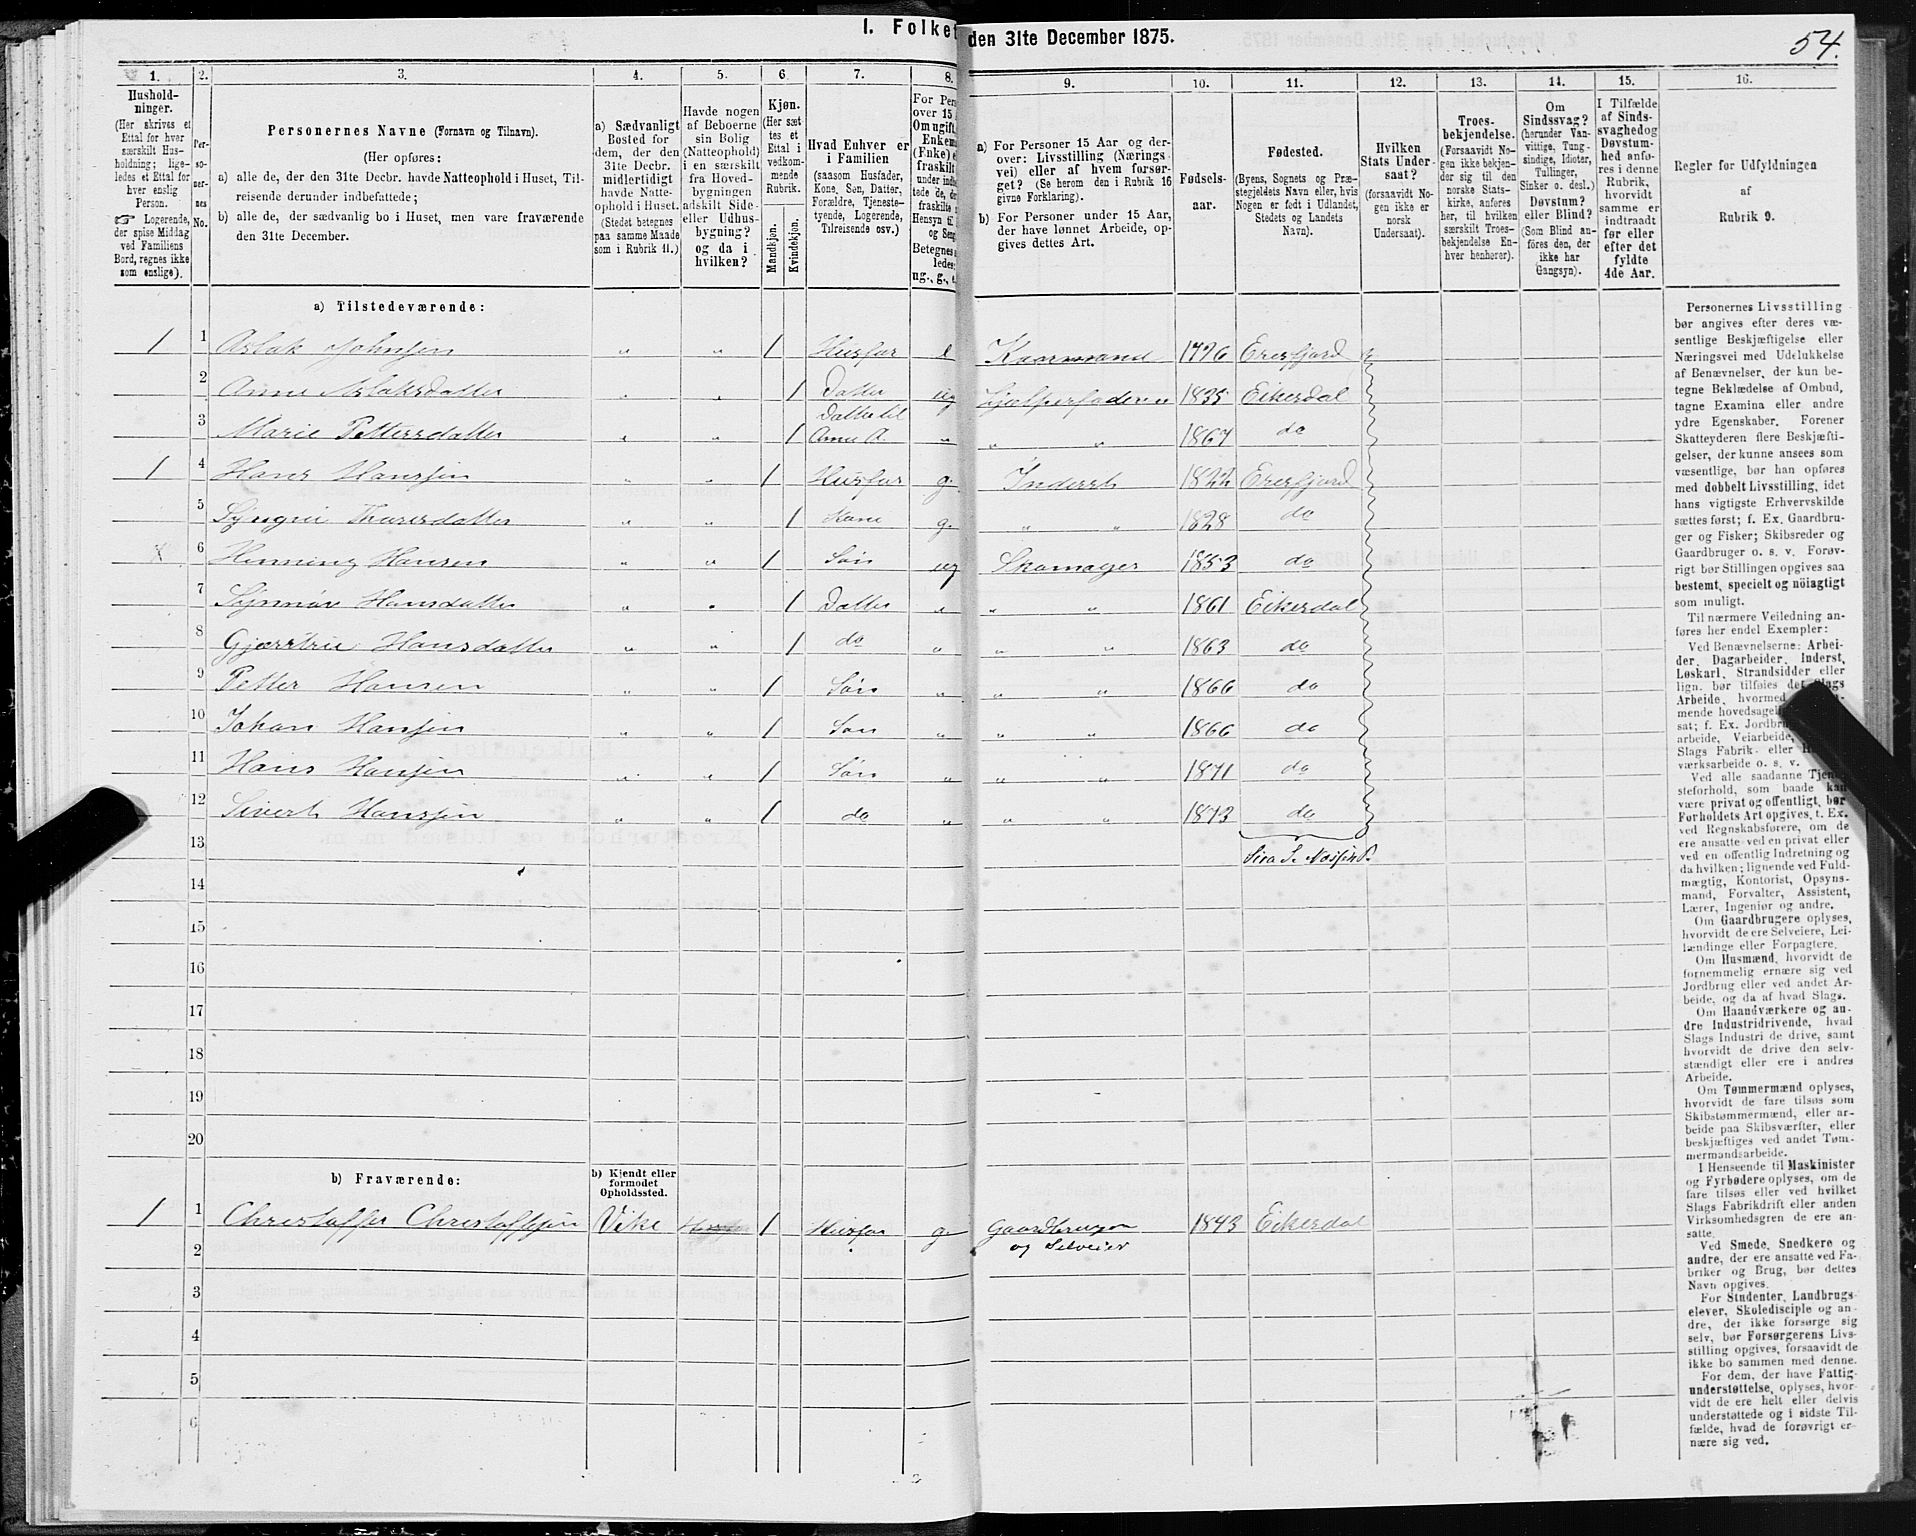 I. Folket
den 31te December 1875.
54.
1. 2. 3. 4. 5. 6. 7. 8. 9. 10. 11. 12. 13. 14. 15. 16.
Hushold-
ninger.
(Her skrives et
Ettal for hver
særskilt Hus-
holdning; lige-
ledes et Ettal for
hver enslig
Person.
☞ Logerende,
der spise Middag
ved Familiens
Bord, regnes ikke
som enslige).
Per-
so-
ner-
nes
No.
Personernes Navne (Fornavn og Tilnavn).
(Her opføres:
a) alle de, der den 31te Decbr. havde Natteophold i Huset, Til-
reisende derunder indbefattede;
b) alle de, der sædvanlig bo i Huset, men vare fraværende
den 31te December.
a) Sædvanligt
Bosted for
dem, der den
31te Decbr.
midlertidigt
havde Natte-
ophold i Huset.
(Stedet betegnes
paa samme Maade
som i Rubrik 11.)
Havde nogen
af Beboerne
sin Bolig
(Natteophold)
i en særskilt
fra Hoved-
bygningen
adskilt Side-
eller Udhus-
bygning?
og da i
hvilken?
Kjøn.
(Her sæt-
tes et
Ettal i
vedkom-
mende
Rubrik.
Mandkjøn.
Kvindekjøn.
Hvad Enhver er
i Familien
(saasom Husfader,
Kone, Søn, Datter,
Forældre, Tjeneste-
tyende, Logerende,
Tilreisende osv.)
For Pers
over 15 A
Om ugift,
Enkem
(Enke) e
fraskilt
under indb
tede de, de
fraskilte
Hensyn til
og Seng
Betegnes s
ledes:
ug., g., e.
a) For Personer 15 Aar og der-
over: Livsstilling (Nærings-
vei) eller af hvem forsør-
get? (Se herom den i Rubrik 16
givne Forklaring).
b) For Personer under 15 Aar,
der have lønnet Arbeide, op-
gives dettes Art.
Fødsels-
aar.
Fødested.
(Byens, Sognets og Præ-
stegjeldets Navn eller, hvis
Nogen er født i Udlandet,
Stedets og Landets
Navn).
Hvilken
Stats Under-
saat?
(forsaavidt No-
gen ikke er
norsk
Undersaat).
Troes-
bekjendelse.
(Forsaavidt No-
gen ikke bekjen-
der sig til den
norske Stats-
kirke, anføres
her, til hvilken
særskilt Troes-
bekjendelse En-
hver henhører).
Om
Sindssvag?
(herunder Van-
vittige, Tung-
sindige, Idioter,
Tullinger,
Sinker o. desl.)
Døvstum?
eller Blind?
(Som Blind an-
føres den, der
ikke har
Gangsyn).
I Tilfælde
af Sinds-
svaghedog
Døvstum-
hed anfø-
res i denne
Rubrik,
hvorvidt
samme er
indtraadt
før eller
efter det
fyldte
4de Aar.
Regler for Udfyldningen
af
Rubrik 9.
a) Tilstedeværende:
1 1 Aslak Johnsen „ „ 1 Husfar e Kaarmand 1796 Eresfjord
2 Anne Aslaksdatter „ „ 1 Datter ug Hjælper faderen 1835 Eikesdal
3 Marie Pettersdatter „ „ 1 Datter til Anne A. „ „ „ 1867 do
1 4 Hans Hanssen „ „ 1 Husfar g. Inderst 1822 Eresfjord
5 Thoresdatter „ „ 1 Kone g. „ „ 1828 do
x 6 Henning Hansen „ „ 1 Søn ug Skomager 1853 do
7 Synnøv Hansdatter „ „ 1 Datter „ „ „ 1861 Eikesdal
8 Hansdatter „ „ 1 do „ „ „ 1863 do
9 Petter Hansen „ „ 1 Søn „ „ „ 1866 do
10 Johan Hansen „ „ 1 Søn „ „ „ 1866 do
11 Hans Hansen „ „ 1 Søn „ „ „ 1871 do
12 Sivert Hanssen „ „ 1 do „ „ „ 1873 do
13
14
15
16
17
18
19
20
b) Fraværende:
b) Kjendt eller
formodet
Opholdssted.
1 1 Christoffer Christoffersen Vike 1 Husfar g. Gaardbruger 1843 Eikesdal
og Selveier
2
3
4
5
6
Personernes Livsstilling
bør angives efter deres væ-
sentlige Beskjæftigelse eller
Næringsvei med Udelukkelse
af Benævnelser, der kun be-
tegne Beklædelse af Ombud,
tagne Examina eller andre
ydre Egenskaber. Forener
Skatteyderen flere Beskjæfti-
gelser, der kunne ansees som
væsentlige, bør han opføres
med dobbelt Livsstilling, idet
hans vigtigste Erhvervskilde
sættes først; f. Ex. Gaardbru-
ger og Fisker; Skibsreder og
Gaardbruger o. s. v. Forøv-
rigt bør Stillingen opgives saa
bestemt, specielt og nöiagtigt
som muligt.
Til nærmere Veiledning an-
føres her endel Exempler:
Ved Benævnelserne: Arbei-
der, Dagarbeider, Inderst,
Løskarl, Strandsidder eller
lign. bør tilføies det Slags
Arbeide, hvormed
mende hovedsagel
sat; f. Ex. Jordbru
arbeide, Veiarbeide,
Slags Fabrik- eller
værksarbeide o. s. v.
Ved alle saadanne Tjene
steforhold, som baade kan
være privat og offentligt, bør
Forholdets Art opgives, t. Ex.
ved Regnskabsførere, om de
ere ansatte ved en privat eller
ved en offentlig Indretning og
da hvilken; lignende ved Fuld-
mægtig, Kontorist, Opsyns-
mand, Forvalter, Assistent,
Lærer, Ingeniør og andre.
Om Gaardbrugere oplyses,
hvorvidt de ere Selveiere, Lei-
lændinge eller Forpagtere.
Om Husmænd, hvorvidt de
fornemmelig ernære sig ved
Jordbrug eller ved andet Ar-
beide, og da af hvad Slags.
Om Haandværkere og an-
dre Industridrivende, hvad
Slags Industri de drive, samt
hvorvidt de drive den selv-
stændigt eller ere i andres
Arbeide.
Om Tømmermænd oplyses,
hvorvidt de fare tilsøs som
Skibstømmermænd, eller ar-
beide paa Skibsværfter, eller
beskjæftiges ved andet Tøm-
mermandsarbeide.
I Henseende til Maskinister
og Fyrbødere oplyses, om de
fare tilsøs eller ved hvilket
Slags Fabrikdrift eller anden
Virksomhedsgren de ere an-
satte.
Ved Smede, Snedkere og
andre, der ere ansatte ved Fa-
briker og Brug, bør dettes
Navn opgives.
For Studenter, Landbrugs-
elever, Skoledisciple og an-
dre, der ikke forsørge sig
selv, bør Forsørgerens Livs-
stilling opgives, forsaavidt de
ikke bo sammen med denne.
For dem, der have Fattig-
understøttelse, oplyses, hvor-
vidt de ere helt eller delvis
understøttede og i sidste Til-
fælde, hvad de forøvrigt er-
nære sig ved.